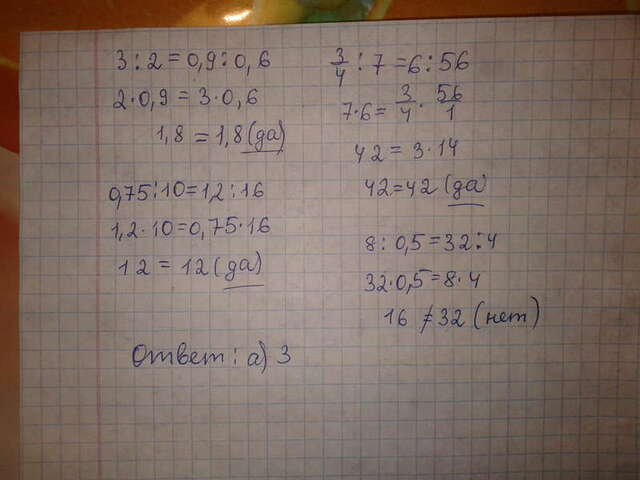 3:2=0,9:0,6
2·0,9=3·0,6
1,8=1,8(да)
0,75:10=1,2:16
1,2·10=0,75·16
12=12(да)
3/4:7=6:56
7·6=3/4·56/1
42=3·14
42=42(да)
8:0,5=32:4
32·0,5=8·4
16≠32(нет)
Ответ: а) 3